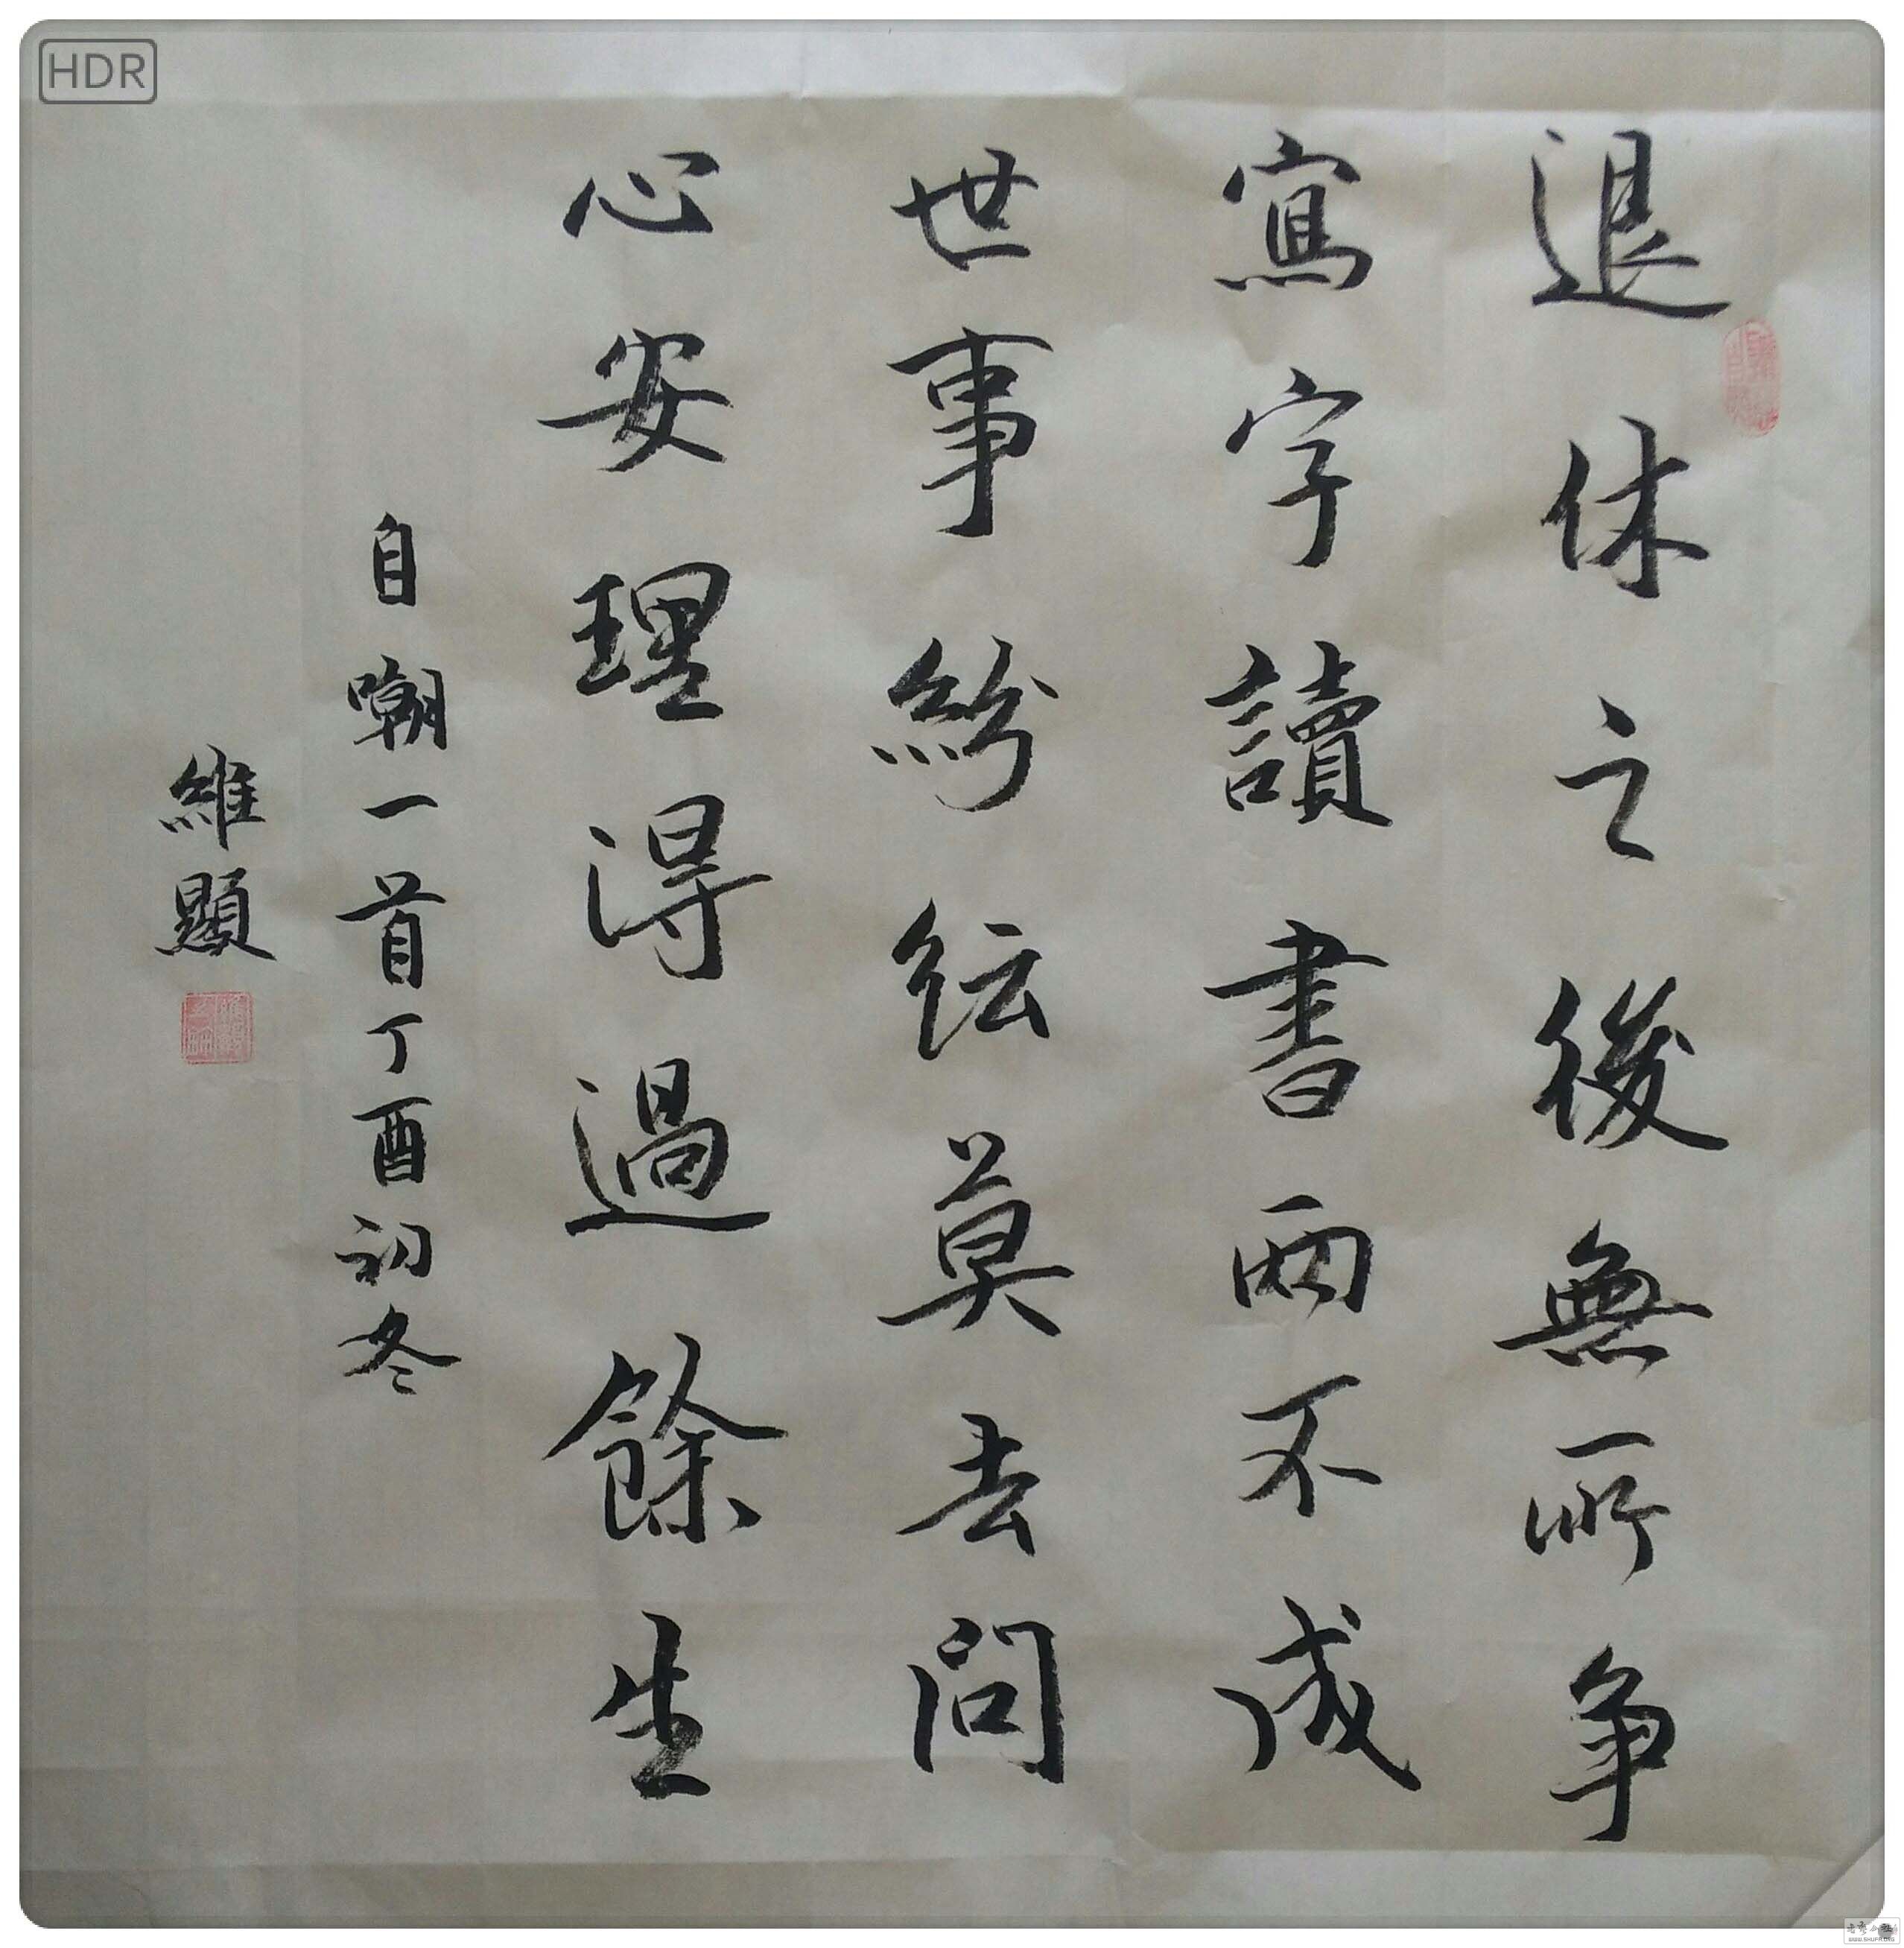 退休之後無所争
寫字讀書両不成
世事紛紜莫去問
心安理得過餘生
自嘲一首丁酉初冬
維顯
HDR